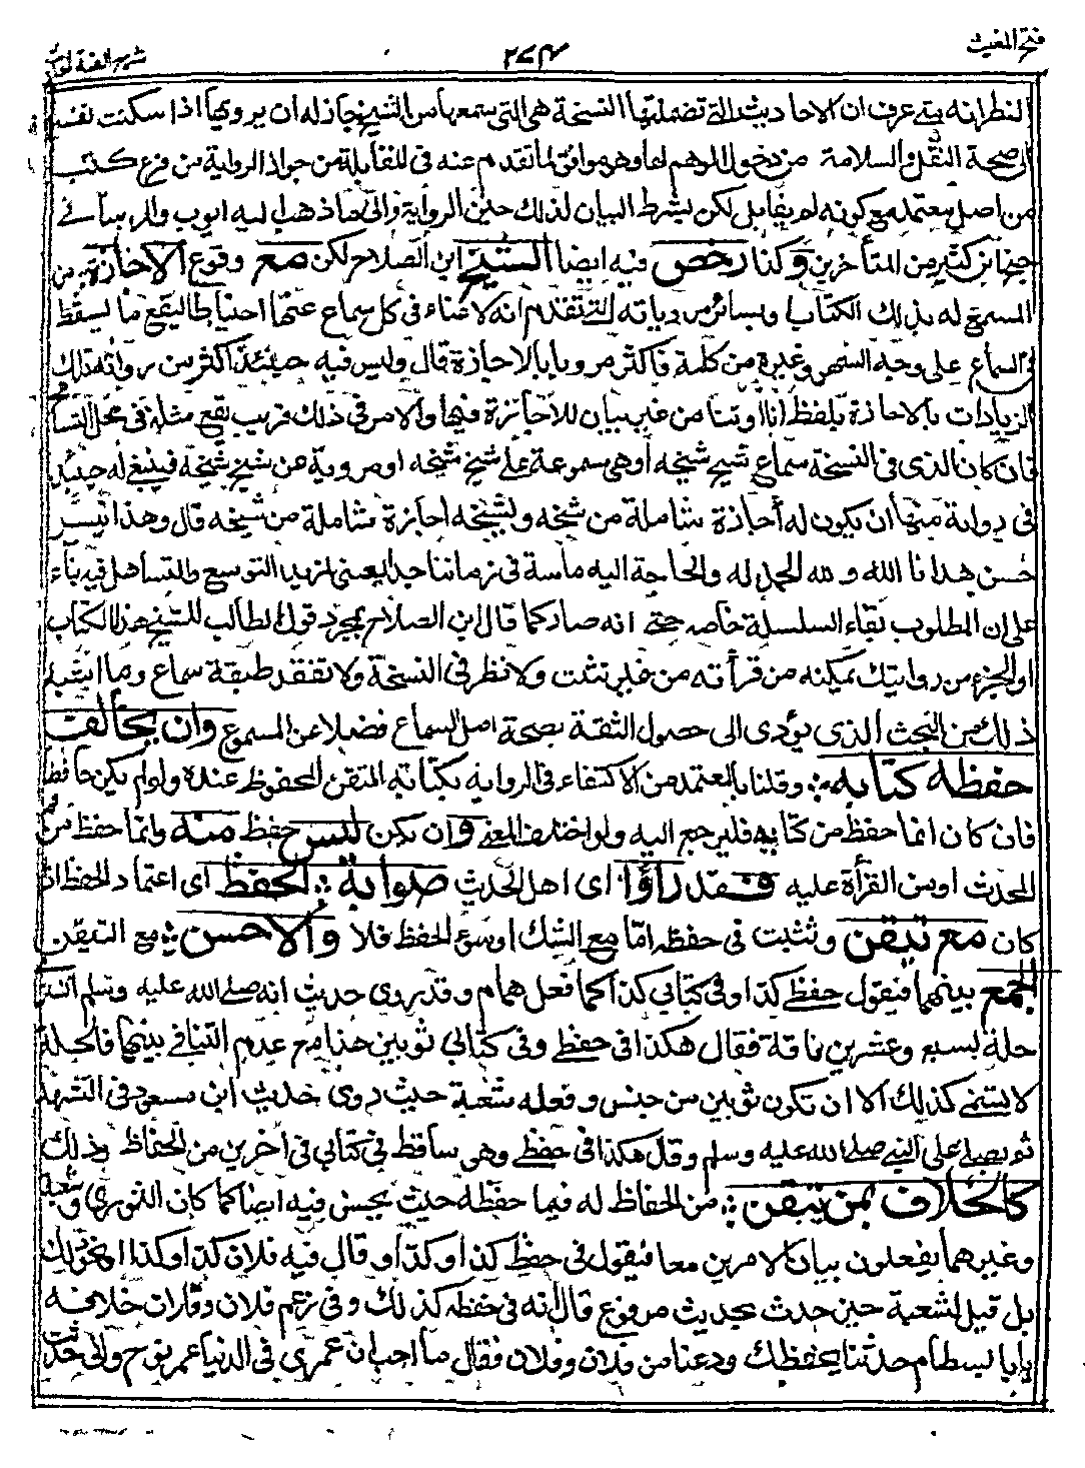 فتح المغيث
٢٧٣
شرح الفية
النظر انه متى عرف ان الاحاديث التي تضمنتها النسخة هي التي سمعها من الشيخ جاز له ان يرويها اذا سكنت نفسه
الى صحة النقل والسلامة من دخول الوهم لها وهو موافق لما تقدم عنه في المقابلة من جواز الرواية من فرع كتب
من اصل معتمد مع كونه لم يقابل لكن بشرط البيان لذلك حين الرواية والى ما ذهب اليه ايوب والبرساني
جنح ابن كثير من المتأخرين وكذا رخص فيه ايضا الشيخ ابن الصلاح لكن مع وقوع الاجازة من
المسمع له بذلك الكتاب او بسائر مروياته التي تقدم انه لا غناء في كل سماع عنها احتياطا ليقع ما يسقط
في السماع على وجه السهو وغيره من كلمة فاكثر مرويا بالاجازة قال وليس فيه حينئذ اكثر من روايته تلك
الزيادات بالاجازة بلفظ انا او ثنا من غير بيان للاجازة فيها والامر في ذلك قريب يقع مثله في محل التسامح
فان كان الذي في النسخة سماع شيخ شيخه او هي مسموعة على شيخ شيخه او مروية عن شيخ شيخه فينبغي له حينئذ
في رواية منها ان يكون له اجازة شاملة من شيخه ولشيخه اجازة شاملة من شيخه قال وهذا تيسير
حسن هدانا الله و لله الحمد له والحاجة اليه ماسة في زماننا جدا يعني لمزيد التوسع والتساهل فيه بناء
على ان المطلوب بقاء السلسلة خاصه حتى انه صار كما قال ابن الصلاح بمجرد قول الطالب للشيخ هذا الكتاب
او الجزء من روايتك يمكنه من قرأته من غير تثبت ولا نظر في النسخة ولا تفقد طبقة سماع وما اشبه
ذلك من البحث الذي يؤدى الى حصول الثقة بصحة اصل السماع فضلا عن المسموع وان يخالف
حفظه كتابه : وقلنا بالمعتمد من الاكتفاء في الرواية بكتابه المتقن المحفوظ عنده ولو لم يكن حافظا
فان كان انما حفظ من كتابه فليرجع اليه ولو اختلف المعنى وان يكن ليس حفظ منه وانما حفظ من فم
المحدث او من القرأة عليه فقد رأوا اى اهل الحديث صوابه : الحفظ اى اعتماد الحفظ اذا
كان مع تيقن وتثبت في حفظه اما مع الشك او سوء الحفظ فلا والاحسن : مع التيقن
الجمع بينهما فيقول حفظي كذا وفي كتابي كذا كما فعل همام وقد روى حديث انه صلى الله عليه وسلم اشترى
حلة بسبع وعشرين ناقة فقال هكذا في حفظي وفي كتابي ثوبين هذا مع عدم التنافي بينهما فالحلة
لا تسمى كذلك الا ان تكون ثوبين من جنس وفعله شعبة حيث روى حديث ابن مسعود في التشهد
ثم يصلي على النبي صلى الله عليه وسلم وقال هكذا في حفظي وهو ساقط في كتابي في آخرين من الحفاظ وذلك
كالخلاف ممن يتقن : من الحفاظ له فيما حفظه حيث يحسن فيه ايضا كما كان الثوري وشعبة
وغيرهما يفعلون بيان الامرين معا فيقول في حفظي كذا وكذا وقال فيه فلان كذا وكذا او نحو ذلك
بل قيل لشعبة حين حدث بحديث مرفوع قال انه في حفظه كذلك وفي زعم فلان وفلان خلافه
يا ابا بسطام حدثنا بحفظك ودعنا من فلان وفلان فقال ما احب ان عمري في الدنيا عمر نوح واني حدثت